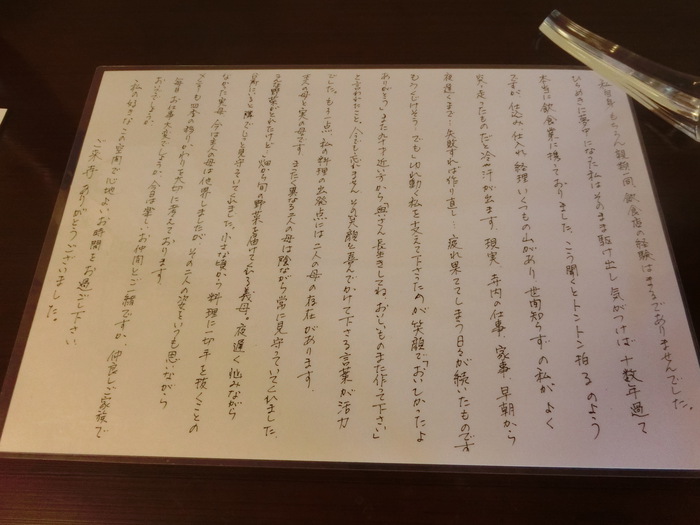 私自身もちろん親類一同、飲食店の経験はまるでありませんでした。
ひらめきに夢中になった私はそのまま駆け出し気がつけば十数年過ぎて
本当に飲食業に携っておりました。こう聞くとトントン拍子のよう
ですが、仕込み、仕入れ、経理、いくつもの山があり、世間知らずの私がよく
突っ走ったものだと冷や汗が出ます。現実、寺内の仕事、家事、早朝から
夜遅くまで…失敗すれば作り直し…と疲れ果ててしまう日々が続いたものです
もうくじけそう…でも」揺れ動く私を支えて下さったのが笑顔で「おいしかったよ
ありがとう」また九十才近い方から「奥さん長生きしてね。おいしいものまた作って下さい」
と言われたこと、今でも忘れません。その笑顔と喜んでかけて下さる言葉が活力
でした。もう一点、私の料理の出発点には二人の母の存在があります。
主人の母と実の母です。まったく異なる二人の母は陰ながら常に見守っていてくれました。
「又野菜がとれたけど…」畑から旬の野菜を届けてくれる義母。夜遅く悩みながら
台所にいると隣でじっと見守っていてくれました。小さな頃から料理に一切手を抜くことの
なかった実母。今は主人の母は他界しましたが、その二人の姿をいつも思いながら
とても四季の移りかわりを大切に考えております。
毎日お仕事大変でしょうが、今日は楽しいお仲間とご一緒ですか、仲良しい家族で
おいででしょうか。
私の好きなこの空間で心地よいお時間をお過ごし下さい
ご来寺ありがとうございました。